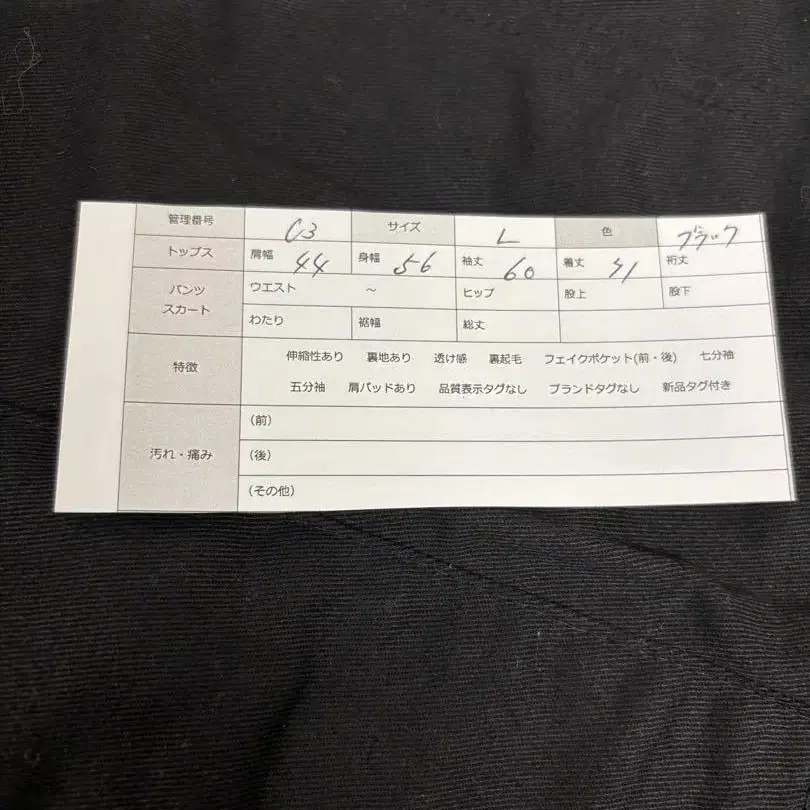 管理番号 C3 サイズ L 色 ブラック
トップス 肩幅 44 身幅 56 袖丈 60 着丈 裄丈
パンツ スカート ウエスト ~ ヒップ 股上 股下
わたり 裾幅 総丈
特徴 伸縮性あり 裏地あり 透け感 裏起毛 フェイクポケット(前・後) 七分袖
五分袖 肩パッドあり 品質表示タグなし ブランドタグなし 新品タグ付き
汚れ・痛み (前)
(後)
(その他)